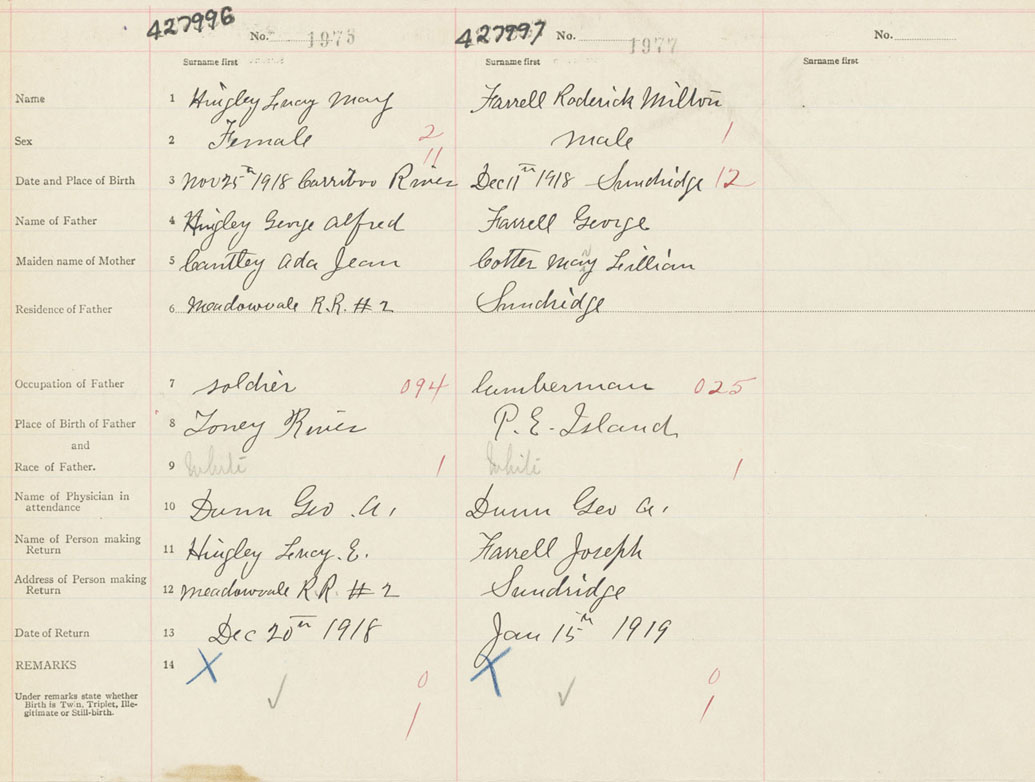 427996 No. 1975 427997 No. 1977 No.
Surname first Surname first Surname first
Name 1 Hingley Lucy May Farrell Roderick Milton
Sex 2 Female 2 male 1
11
Date and Place of Birth 3 Nov 25th 1918 Carriboo River Dec 11th 1918 Sundridge 12
Name of Father 4 Hingley George Alfred Farrell George
Maiden name of Mother 5 Cantley Ada Jean Cotter May Lillian
Residence of Father 6 Meadowvale R.R. # 2 Sundridge
Occupation of Father 7 soldier 094 lumberman 025
Place of Birth of Father 8 Toney River P.E. Island
and
Race of Father. 9 White 1 White 1
Name of Physician in
attendance 10 Dunn Geo. A. Dunn Geo A.
Name of Person making
Return 11 Hingley Lucy. E. Farrell Joseph
Address of Person making
Return 12 Meadowvale R.R. # 2 Sundridge
Date of Return 13 Dec 20th 1918 Jan 15th 1919
REMARKS 14 X X
0 0
Under remarks state whether
Birth is Twin, Triplet, Ille-
gitimate or Still-birth. ✓ 1 ✓ 1